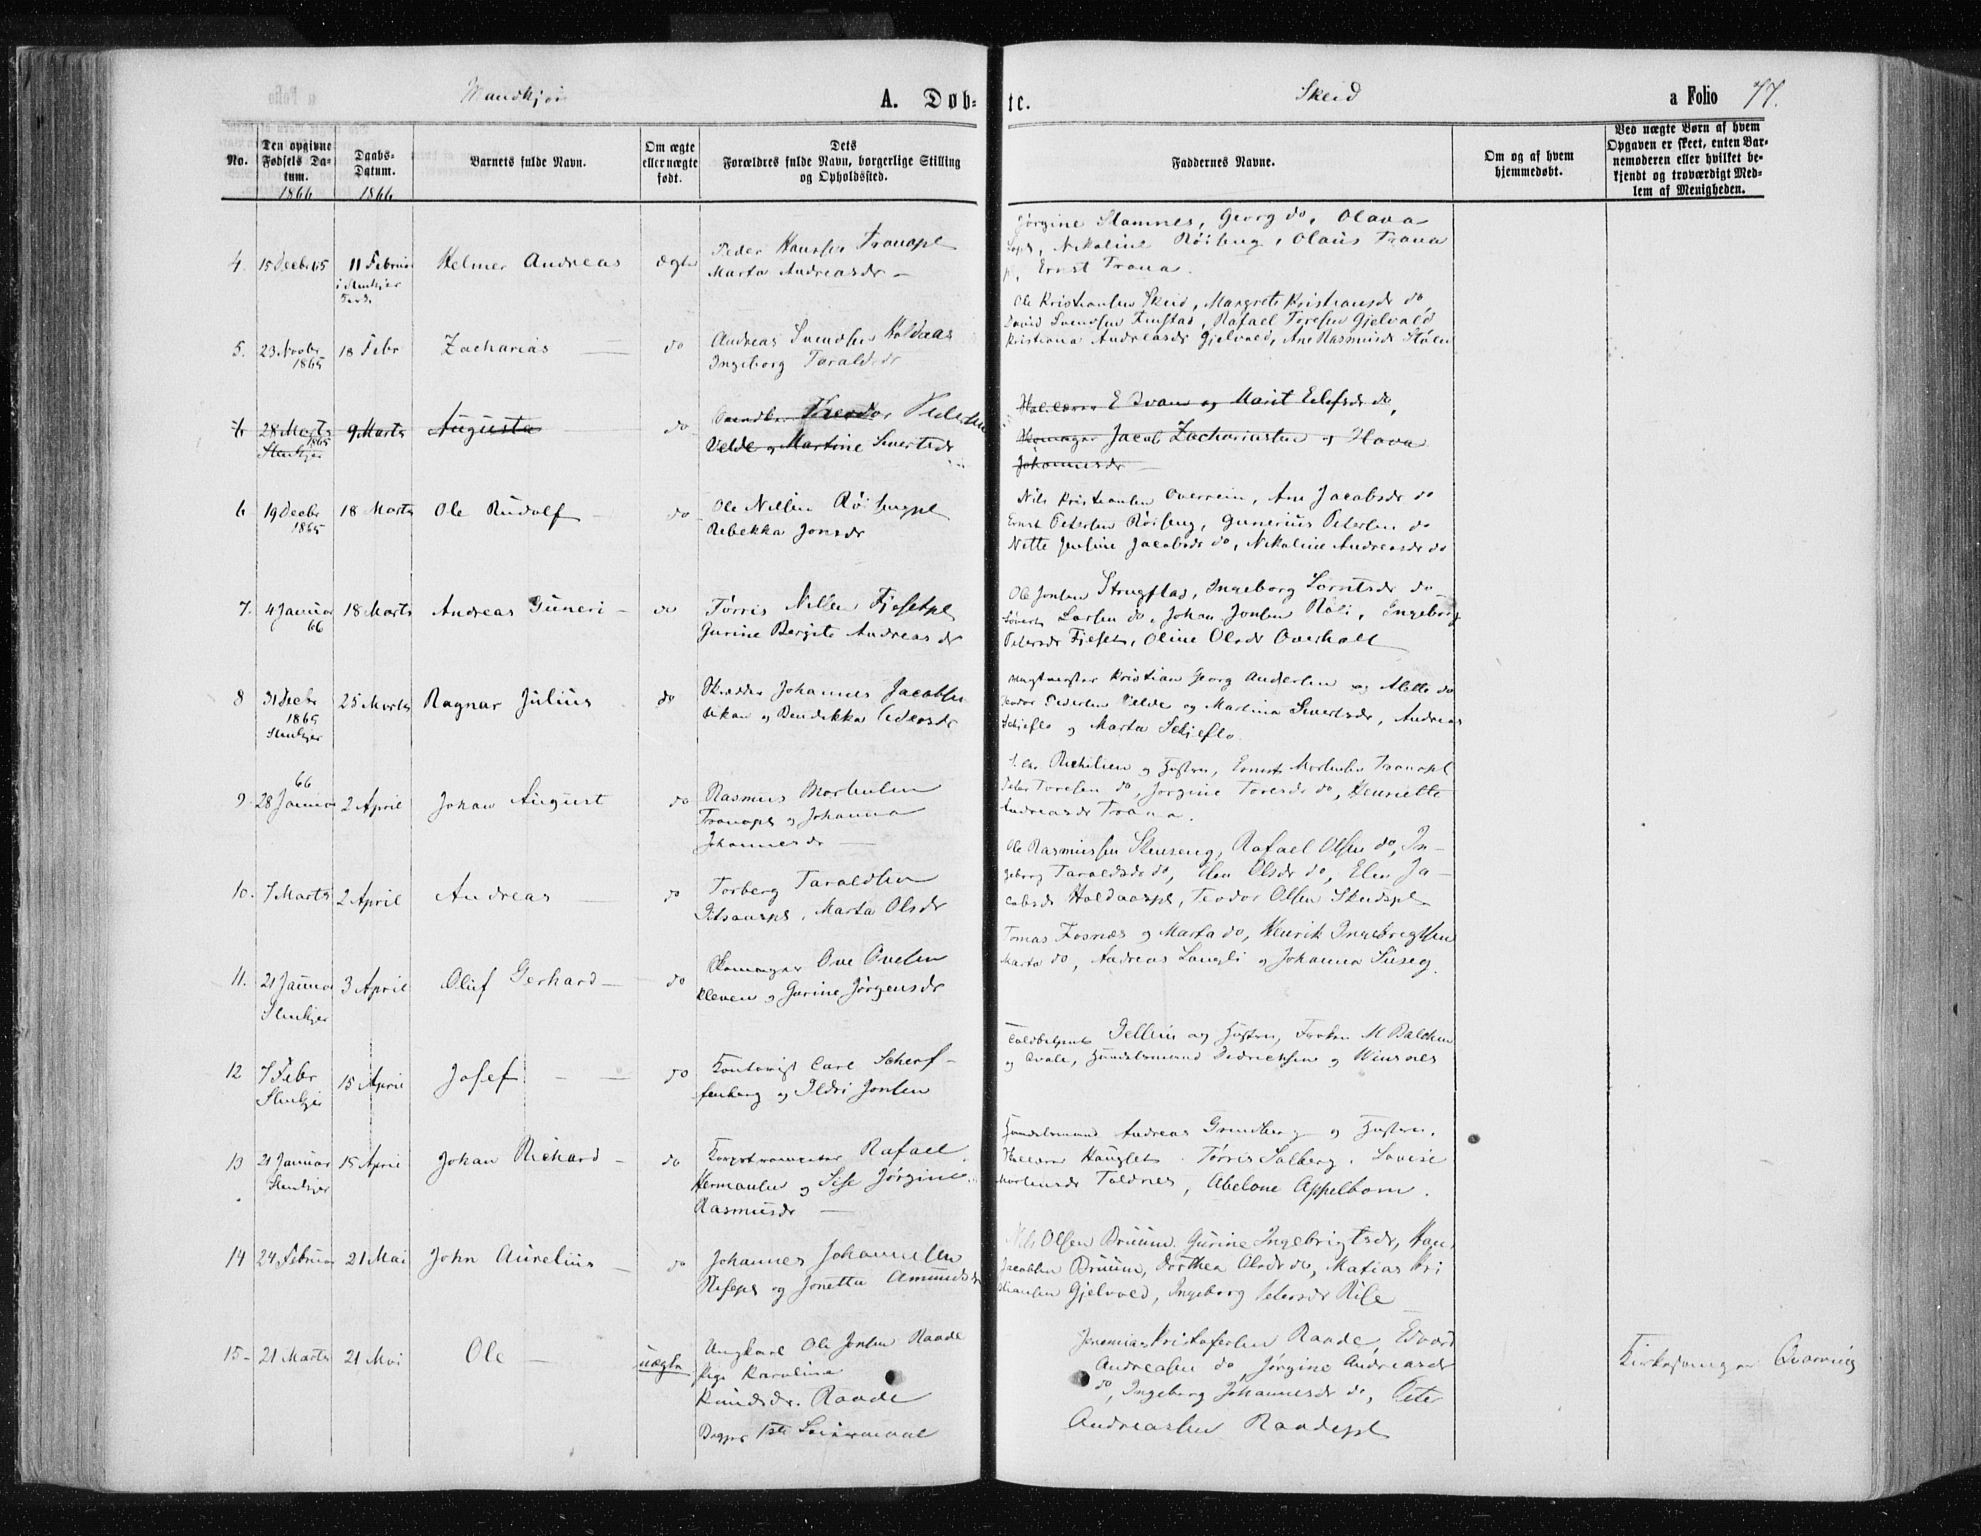 Mandkjøn A. Døb- te. Skeid a Folio 77.
No.
Den opgivne Fødsels Da-
tum.
1866
Daabs-
Datum.
1866
Barnets fulde Navn.
Om ægte
eller uægte
født.
Dets
Forældres fulde Navn, borgerlige Stilling
og Opholdssted.
Faddernes Navne.
Om og af hvem
hjemmedøbt.
Ved uægte Børn af hvem
Opgaven er skeet, enten Bar-
nemoderen eller hvilket be-
kjendt og troværdigt Med-
lem af Menigheden.
4. 15 Decbr 65 11 Februar Helmer Andreas ægte
Peder Hansen Tranapl
Marta Andreasdr
Jørgine Stamnes, Georg do, Olava
Nikoline Røiseng, Olaus Trana
Ernst Trana.
5. 23 Novbr 1865 18 Febr Zacharias do
Andreas Svendsen Holdaas
Ingeborg Taraldsdr
Ole Kristiansen Skeid, Margrete Kristiansdr do,
David Svendsen Finstad, Rafael Toresen Gjelvold
Kristiana Andreasdr Gjelvold, Ane Rasmusdr Stølen
6 28 Marts 1865 Stenkjer 9 Marts Augusta do
Teodor Pedersen
Velde og Martine Sivertsdr
E Svan og Marit Eilefsdr do,
Skomager Jacob Zachariassen og Hava
Johannesdr
6 19 Decbr 1865 18 Marts Ole Rudolf do
Ole Nilsen Røisengpl
Rebekka Jonsdr
Nils Kristiansen Overrein, Ane Jacobsdr do
Ernst Petersen Røiseng, Gunerius Petersen do
Nette Jensine Jacobsdr do, Nikoline Andreasdr do
7. 4 Januar 66 18 Marts Andreas Guneri do
Tørris Nilsen Fjesetpl
Gurine Bergite Andreasdr
Ole Jonsen Strugstad, Ingeborg Sorntsdr do
Sivert Larsen do, Johan Jonsen Røli, Ingeborg
Petersdr Fjeset, Oline Olsdr Overholt
8 31 Decbr 1865 Stenkjer 25 Marts Ragnar Julius do
Skrædder Johannes Jacobsen
og Bendikka
Kristian Georg Andersen og Alette do
Teodor Pedersen Velde og Martina Sivertsdr, Andreas
Schjeflo og Marta Schjeflo.
9. 66 28 Januar 2 April Johan August do
Rasmus Mortensen
Tranapl og Johanna
Johannesdr
og Hustru, Ernst Mortensen Tranapl
Peter Toresen do, Jørgine Toresdr do, Henriette
Andreasdr Trana.
10. 7 Marts 2 April Andreas do
Torberg Taraldsen
Marta Olsdr
Ole Rasmussen Stenseng, Rafael Olsen do, In-
geborg Taraldsdr do, Elen Olsdr do, Elen Ja-
cobsdr Holdaaspl, Teodor Olsen Skeidspl
11. 21 Januar Stenkjer 3 April Oluf Gerhard do
Skomager Ove Ovesen
Kleven og Gurine Jørgensdr
Tomas Fosnæs og Marta do, Henrik Ingebrigtsen
Marta do, Andreas Langli og Johanna
12 7 Febr Stenkjer 15 April Josef do
Kontorist Carl Scherf-
fenberg og Ildri Jonsen
Toldbetjent Jellein og Hustru, Frøken M Balchen
og Qvale, Handelsmand Didrichsen og Winsnes
13 21 Januar Stenkjer 15 April Johan Richard do
Rafael
Hermansen og Sise Jørgine
Rasmusdr
Handelsmand Andreas Grundberg og Hustru.
Hauglet. Tørris Salberg. Lovise
Mortensdr Toldnes, Abelone Appelbom.
14 24 Februar 21 Mai John Aurelius do
Johannes Johannesen
Risepl og Jonetta Amundsdr
Nils Olsen Bruum, Gurine Ingebrigtsdr, Hans
Jacobsen Bruum, Dorthea Olsdr do, Matias Kri
stiansen Gjelvold, Ingeborg Petersdr Rise
15 21 Marts 21 Mai Ole uægte
Ungkarl Ole Jonsen Raade
Pige Karolina
Knudsdr. Raade
Begges 1ste Leiermaal
Jeremias Kristofersen Raade, Edvard
Andreasen do, Jørgine Andreasdr
do, Ingeborg Johannesdr do, Peter
Andreassen Raadepl
Kirkesanger Qvarving